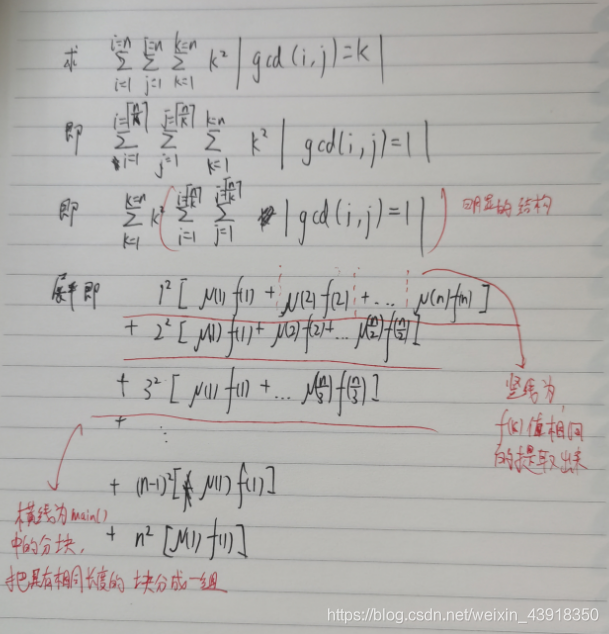 求 ∑_{i=1}^{i=n} ∑_{j=1}^{j=n} ∑_{k=1}^{k=n} k² | gcd(i,j)=k |
即 ∑_{i=1}^{i=⌈n/k⌉} ∑_{j=1}^{j=⌈n/k⌉} ∑_{k=1}^{k=n} k² | gcd(i,j)=1 |
即 ∑_{k=1}^{k=n} k² ( ∑_{i=1}^{i=⌈n/k⌉} ∑_{j=1}^{j=⌈n/k⌉} | gcd(i,j)=1 | ) 明显的结构
展开即 1² [ μ(1) f(1) + μ(2) f(2) + ... μ(n) f(n) ]
+ 2² [ μ(1) f(1) + μ(2) f(2) + ... μ(n/2) f(n/2) ]
+ 3² [ μ(1) f(1) + ... μ(n/3) f(n/3) ]
+ ⋮
+ (n-1)² [ μ(1) f(1) ]
+ n² [ μ(1) f(1) ]
竖线为
f(k) 值相同
的提取出来
横线为 main()
中的分块,
把具有相同长度的 块分成一组
https://blog.csdn.net/weixin_43918350